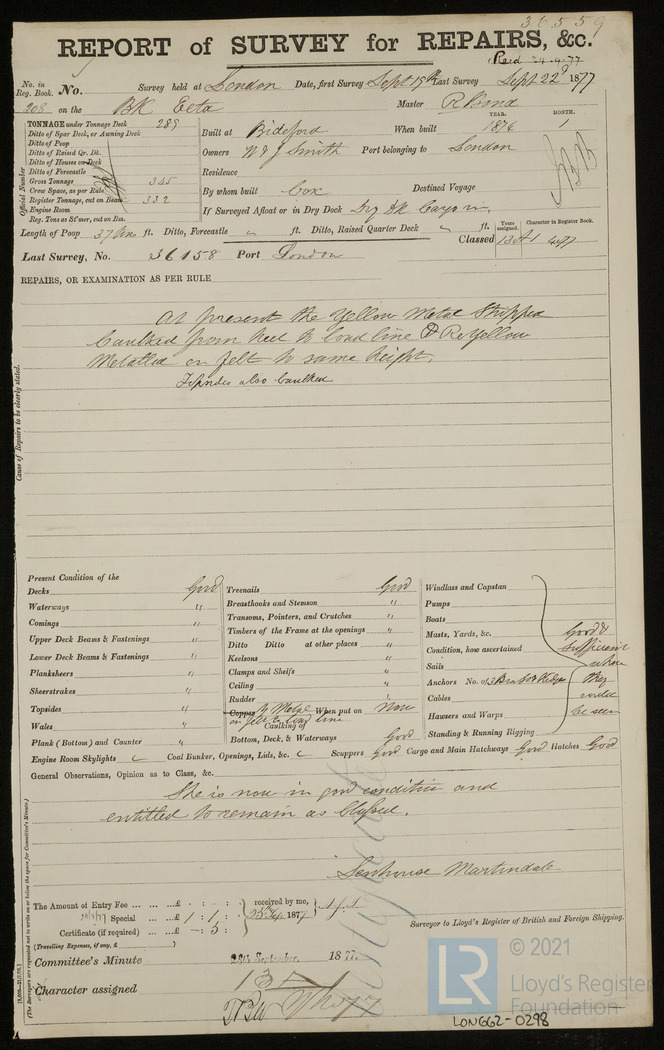 36559
REPORT of SURVEY for REPAIRS, &c.
Recd 24.9.77
No. in Reg. Book. No. Survey held at London Date, first Survey Sept 19th Last Survey Sept 22nd 1877
208 on the BK Eeta Master R Bind
TONNAGE under Tonnage Deck 289
Ditto of Spar Deck, or Awning Deck
Ditto of Poop
Ditto of Raised Qr. Dk.
Ditto of Houses on Deck
Ditto of Forecastle
Gross Tonnage 345
Crew Space, as per Rule
Register Tonnage, cut on Beam 332
Engine Room
Reg. Tons as St'mer, cut on Bm.
Official Number
Built at Bideford When built YEAR. 1876 MONTH. 1
Owners W & J Smith Port belonging to London
Residence
By whom built Cox Destined Voyage
If Surveyed Afloat or in Dry Dock Dry Dk
Length of Poop 37 ft. Ditto, Forecastle " ft. Ditto, Raised Quarter Deck " ft.
Years assigned. Character in Register Book.
Classed 13 A1 4.77
Last Survey, No. 36158 Port London
REPAIRS, OR EXAMINATION AS PER RULE
At present the Yellow Metal Stripped
Caulked from keel to load line & Re Yellow
Metalled on felt to same height.
Topsides also Caulked
Cause of Repairs to be clearly stated.
Present Condition of the
Decks Good
Waterways "
Comings "
Upper Deck Beams & Fastenings "
Lower Deck Beams & Fastenings "
Planksheers "
Sheerstrakes "
Topsides "
Wales "
Plank (Bottom) and Counter "
Treenails Good
Breasthooks and Stemson "
Transoms, Pointers, and Crutches "
Timbers of the Frame at the openings "
Ditto Ditto at other places "
Keelsons "
Clamps and Shelfs "
Ceiling "
Rudder "
Copper Y Metal When put on Now
on felt to load line
Caulking of
Bottom, Deck, & Waterways Good
Windlass and Capstan
Pumps
Boats
Masts, Yards, &c.
Condition, how ascertained
Sails
Anchors No. of
Cables
Hawsers and Warps
Standing & Running Rigging
Good &
sufficient
where
they
could
be seen
Engine Room Skylights Coal Bunker, Openings, Lids, &c. Scuppers Good Cargo and Main Hatchways Good Hatches Good
General Observations, Opinion as to Class, &c.
She is now in good condition and
entitled to remain as Classed.
Senhouse Martindale
Surveyor to Lloyd's Register of British and Foreign Shipping.
The Amount of Entry Fee ... ...£ : - :
Special ... ...£ 1 : 1 :
Certificate (if required) ...£ - : 5 :
(Travelling Expenses, if any, £ )
received by me,
25 Sep 1877
Committee's Minute 28th September 1877.
Character assigned 13 A 1
(The Surveyors are requested not to write on or below the space for Committee's Minute.)
© 2021
LR
Lloyd's Register
Foundation
LON662-0298